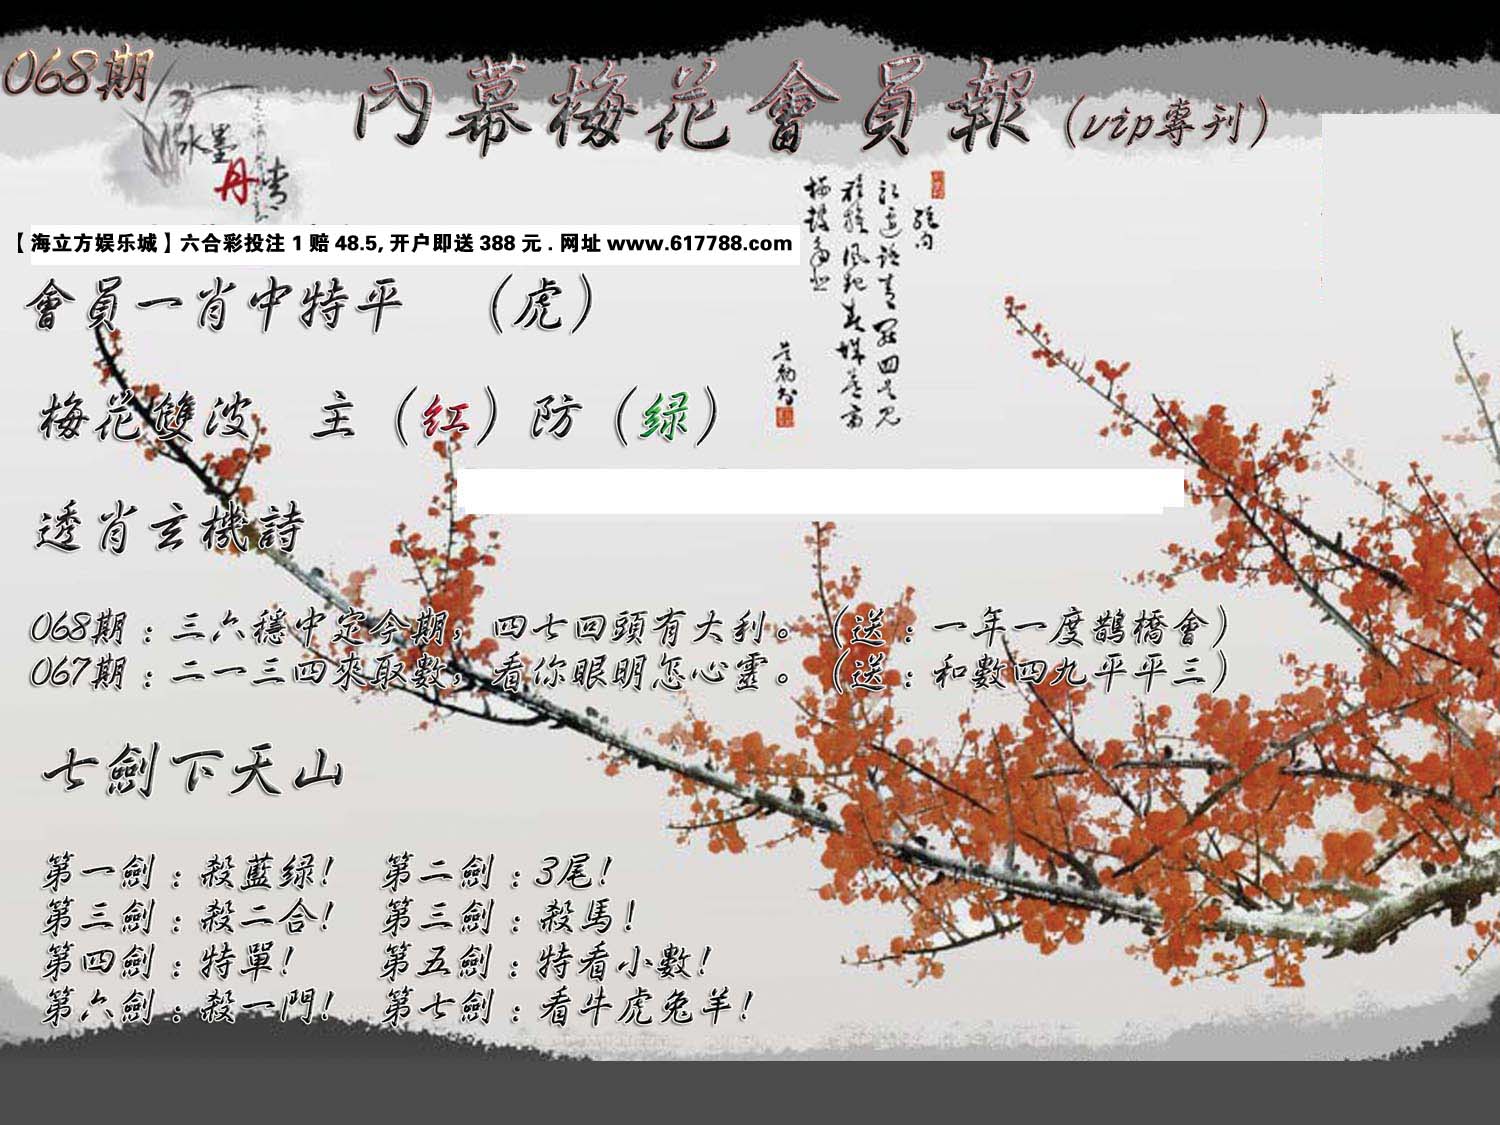 068期
內幕梅花會員報(vip專刊)
水墨
丹青
【海立方娱乐城】六合彩投注 1 赔 48.5, 开户即送 388 元 . 网址 www.617788.com
會員一肖中特平 （虎）
梅花雙波 主（红）防（绿）
透肖玄機詩
068期：三六穩中定今期，四七四頭有大利。（送：一年一度鵲橋會）
067期：二一三四來取數，看你眼明怎心靈。（送：和數四九平平三）
七劍下天山
第一劍：殺藍绿！ 第二劍：3尾！
第三劍：殺二合！ 第三劍：殺馬！
第四劍：特單！ 第五劍：特看小數！
第六劍：殺一門！ 第七劍：看牛虎兔羊！